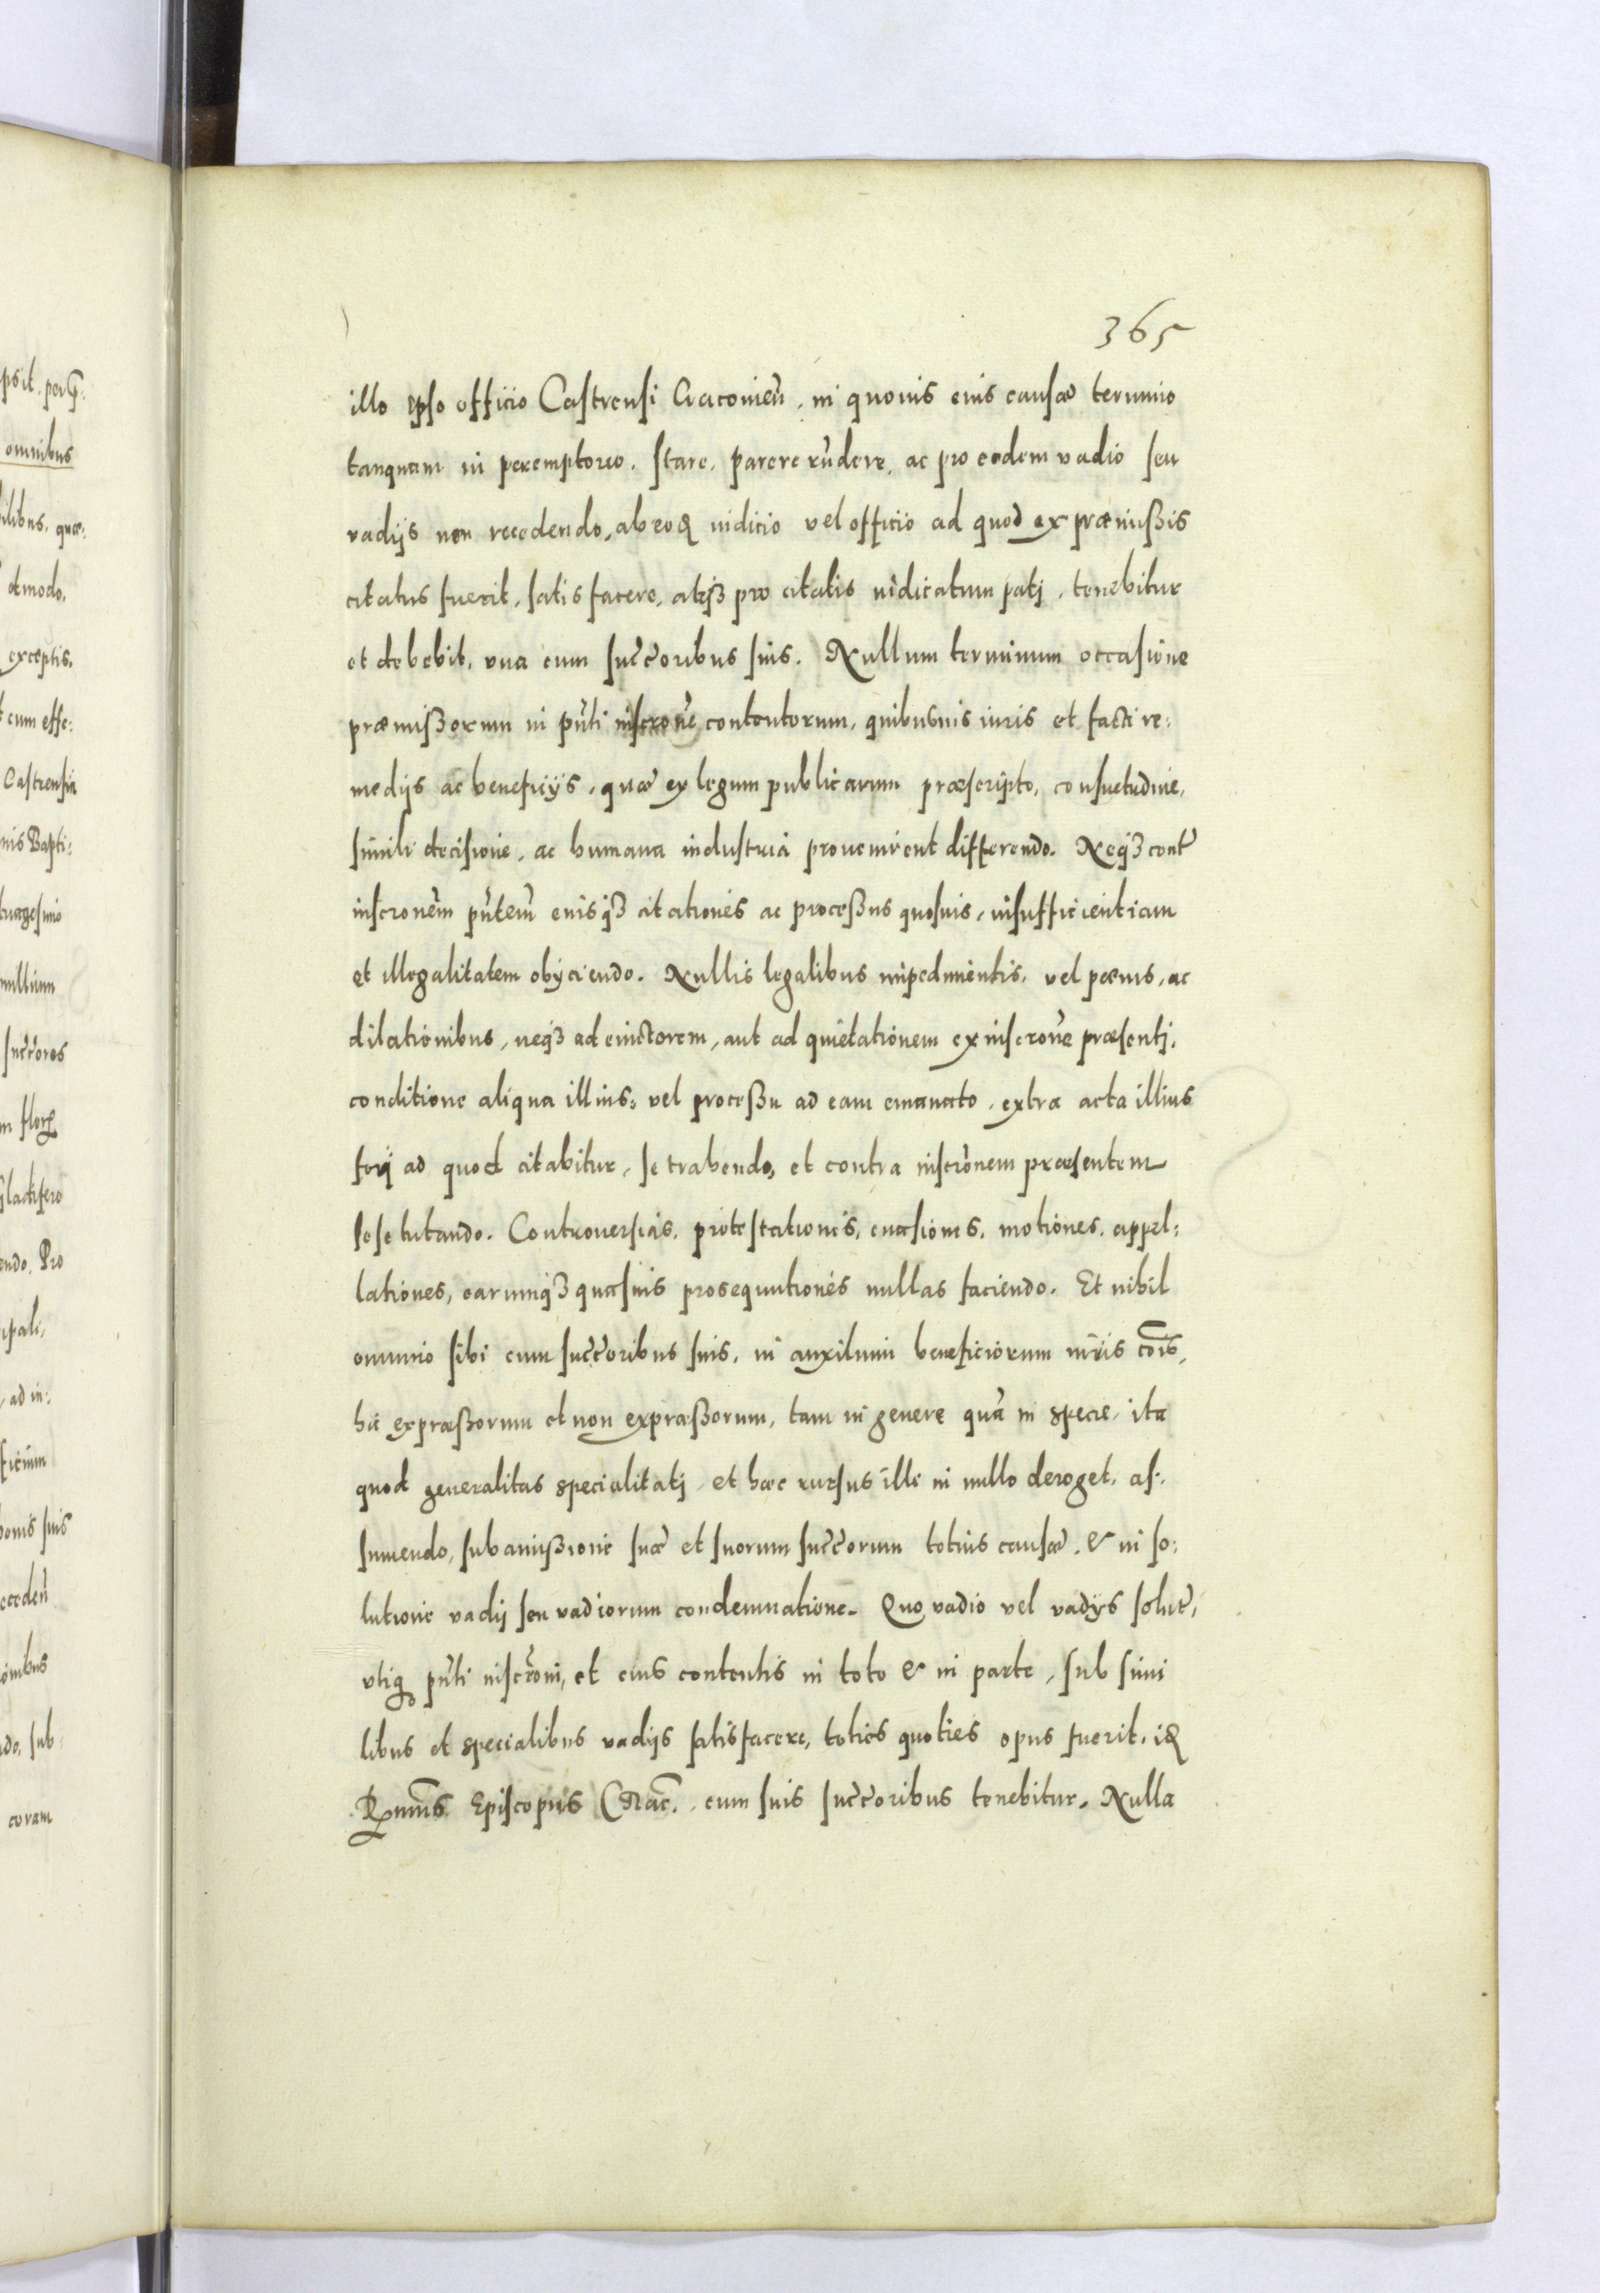 365
illo ipso officio Castrensi Cracovieñ, in quovis eius causæ termino
tanquam in peremptorio. stare, parere rñdere, ac pro eodem vadio seu
vadijs non recedendo, ab eoq iudicio vel officio ad quod ex præmißis
citatus fuerit, satisfacere, atqȝ pro citatis iudicatum patj, tenebitur
et debebit, una cum succoribus suis. Nullum terminum occasione
præmißorum in pñti inscrone contentorum, quibusvis iuris et facti re:
medijs ac beneficijs, quæ ex legum publicarum præscripto, consuetudine,
simili decisione, ac humana industria provenirent differendo. Neqȝ cont
inscronem pñtem eiusqȝ citationes ac proceßus quosvis, insufficientiam
et illegalitatem obijciendo. Nullis legalibus impedimentis, vel pænis, ac
dilationibus, neqȝ ad evictorem, aut ad quietationem ex inscrone præsentj,
conditione aliqua illius, vel proceßu ad eam emanato, extra acta illius
forj ad quod citabitur, se trahendo, et contra inscronem præsentem
sese tutando. Controversias, protestationes, evasiones, motiones, appel:
lationes, earumqȝ quasvis prosequutiones nullas faciendo. Et nihil
omnino sibi cum succoribus suis, in auxilium beneficiorum iuris cois,
hic expræßorum et non expræßorum, tam in genere quã in specie, ita
quod generalitas specialitatj, et hæc rursus illi in nullo deroget, as:
sumendo, sub amißione suæ et suorum succorum totius causæ, & in so:
lutione vadij seu vadiorum condemnatione. Quo vadio vel vadijs solut,
pñti inscroni, et eius contentis in toto & in parte, sub simi
libus et specialibus vadijs satisfacere, toties quoties opus fuerit, i
Rmus Episcopus Crac. cum suis succoribus tenebitur. Nulla
psit
omnibus
ilibus, quæ:
et modo,
exceptis,
cum effe:
Castrensia
nis Bapti:
uagesimo
succores
endo. Pro
, ad in:
ficium
bonis suis
do, sub:
coram